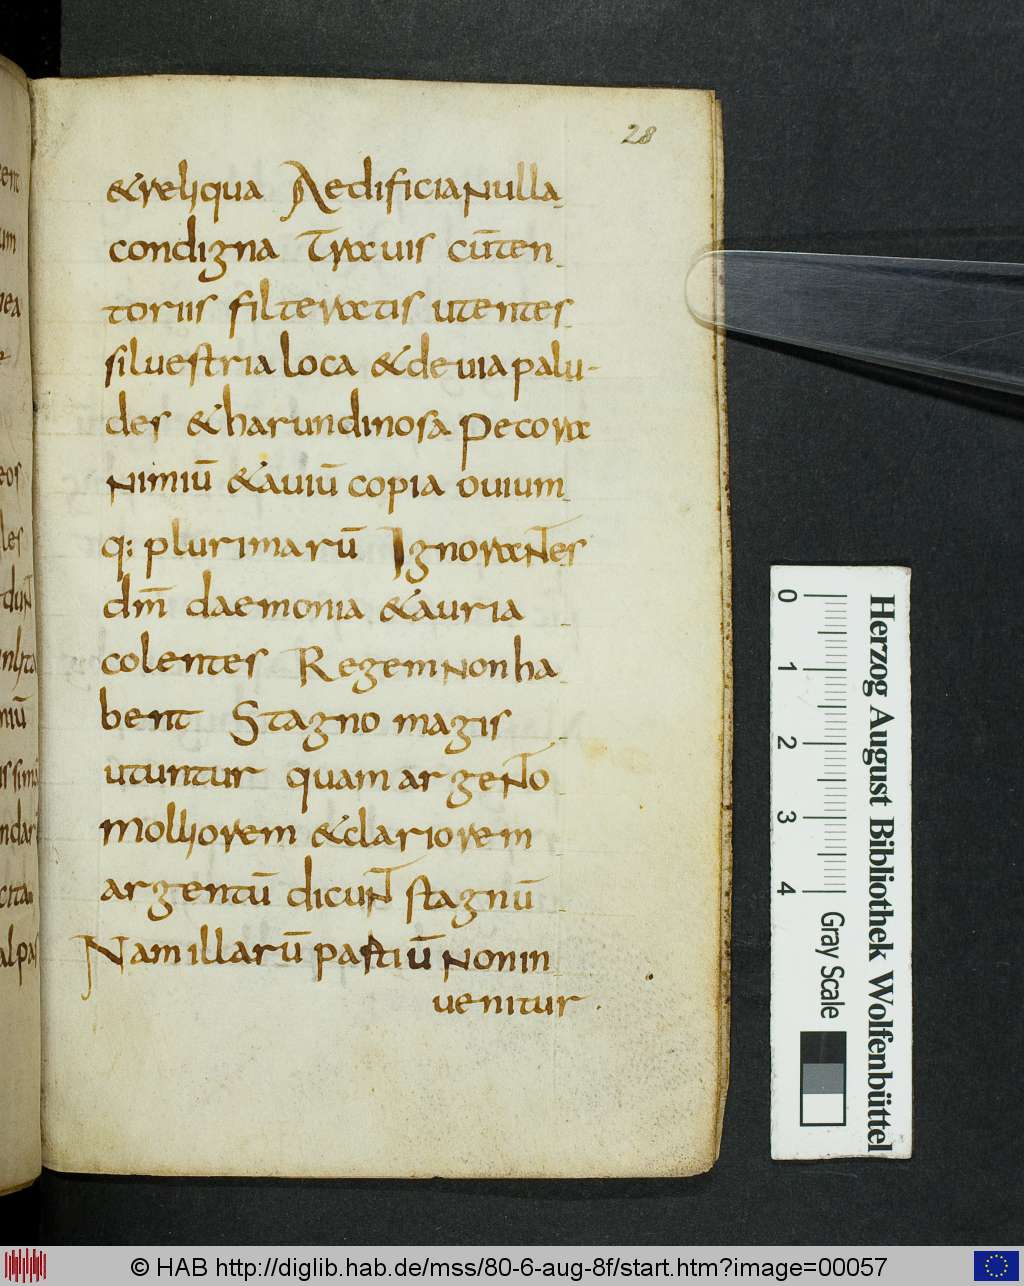 28
&reliqua Aedificia nulla
condigna Trauis cūten
toriis filteratis utentes
siluestria loca &deuia palu-
des &harundinosa Pecora
nimiū &auiū copia ouium
q: plurimarū Ignorantes
dm̄ daemonia &auria
colentes Regem non ha
bent Stagno magis
utuntur quam argento
molliorem &clariorem
argentū dicunt stagnū
Nam illarū partiū non in
uenitur.
Herzog August Bibliothek Wolfenbüttel
0 1 2 3 4
Gray Scale
© HAB http://diglib.hab.de/mss/80-6-aug-8f/start.htm?image=00057